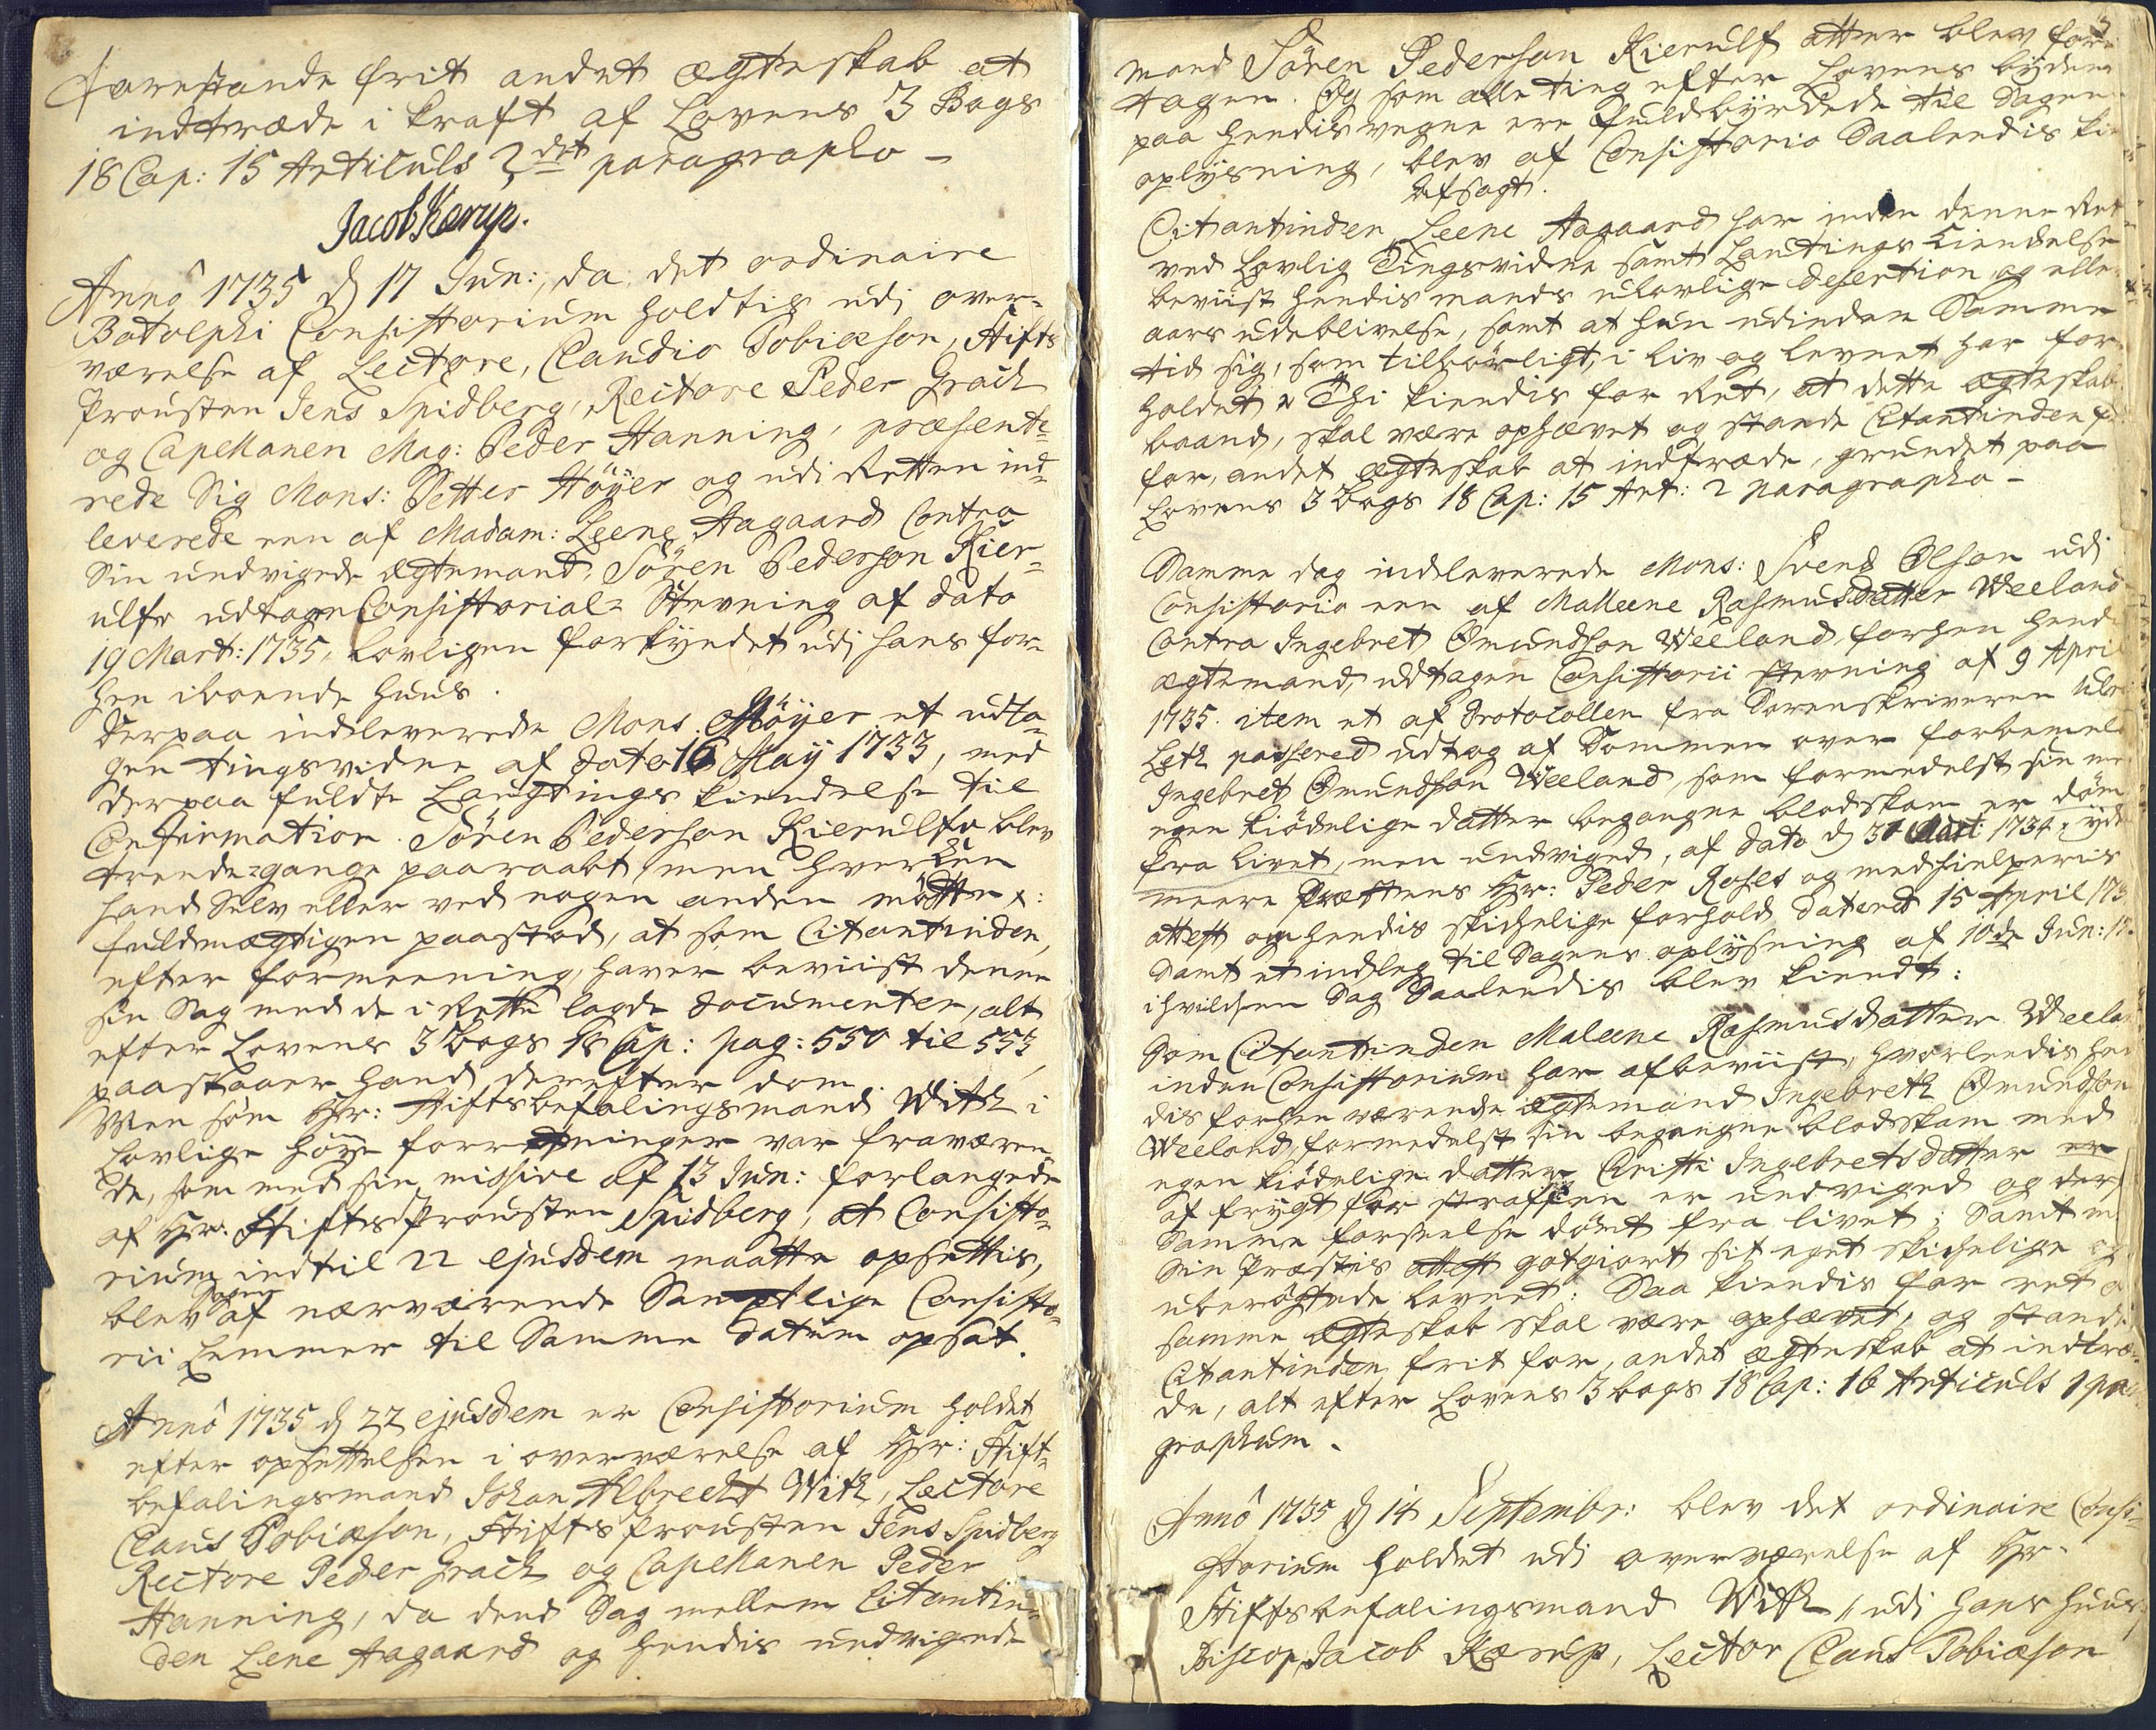 forestande frit andet ægteskab at
indtræde i kraft af Lovens 3 Bogs
18 Cap: 15 Articuls 2det paragrapho –
Jacob Kærup.
Anno 1735 d 17 Jun:, da det ordinaire
Botolphi Consistorium holdtis udj over=
værelse af Lectore, Claudio Tobiæson, Stifts
Prousten Jens Spidberg, Rectore Peder Grach
og Capellanen Mag: Peder Hanning, præsente=
rede sig Mons: Petter Höyer og udi Retten ind=
leverede een af Madam: Leene Aagaard Contra
sin undvigede ægtemand, Sören Pederson Kier=
ulfv udtagen Consistorial= Stevning af dato
19 Mart: 1735, lovligen forkyndet udj hans for=
hen iboende huus.
Derpaa indleverede Mons. Höyer et udta=
gen tingsvidne af dato 16 Maÿ 1733, med
derpaa fuldte Laugtings kiendelse til
Confirmation. Sören Pederson Kierulfv blev
trende=gange paaraabt men hverken
hand selv eller ved nogen anden mötte :
fuldmægtigen paastod, at som Citantinden,
efter formeening, haver beviist denne
sin Sag med de i Rette lagde documenter, alt
efter Lovens 3 Bogs 18 Cap: pag: 550 til 553,
paastaaer hand derefter dom.
Men som Hr: Stiftsbefalingsmand Witk i
lovlige höye forretninger var fraværen=
de, som med sin missive af 13 Jun: forlangede
af Hr. Stifts Prousten Spidberg, at Consisto=
rium indtil 22 ejusdem maatte opsettis,
blev Sagen af nærværende Samptlige Consisto=
rii Lemmer til Samme datum opsat.
Anno 1735 d 22 ejusdem er Consistorium holdet
efter opsettelsen i overværelse af Hr: Stift=
befalingsmand Johan Albrecht Witk, Lectore
Claus Tobiæson, Stifts Prousten Jens Spidberg
Rectore Peder Grach og Capellanen Peder
Hanning, da dend Sag mellem Citantin=
den Lene Aagaard og hendis undvigede
mand Sören Pederson Kierulf atter blev fore
tagen. Og som alle ting efter Lovens bydende
paa hendis vegne ere fuldbyrdede til Sagens
oplysning, blev af Consistorio Saaledis
afsagt.
Citantinden Leene Aagaard har inden denne Ret
ved Lovlig Tingsvidne samt Lautings Kiendelse
beviist hendis mands ulovlige desertion og
aars udeblivelse, samt at hun udinden Samme
tid sig, som tilbörligt, i liv og levnet har for=
holdet: Thi kiendis for Ret, at dette ægteskabs
baand, skal være ophævet og stande Citantinden
for, andet ægteskab at indtræde, grundet paa
Lovens 3 bogs 18 Cap: 15 Art: 2 paragrapho –
Samme dag indleverede Mons: Svend Olson udj
Consistorio een af Malleene Rasmusdatter Weeland
Contra Ingebret Omundson Weeland, forhen hendis
ægtemand, udtagen Consistorii stevning af 9 April
1735. item et af Protocollen fra Sorenskriveren
Leth passered udtog af Dommen over forbemelte
Ingebret Omundson Weeland, som formedelst sin med
egen kiödelige datter begangne blodskam er döm
fra livet, men undviged, af dato d 31 Mart 1734,
meere Præstens Hr: Peder Roses og medhielperis
attest om hendis skichelige forhold, dateret 15 April 173
Samt et indleg til Sagens oplysning af 10de Jun: 17
i hvilchen Sag Saaledis blev kiendt:
Som Citantinden Maleene Rasmusdatter Weela
inden Consistorium har afbeviist, hvorledis hen
dis forhen værende ægtemand Ingebreth Omundson
Weeland, formedelst sin begangne blodskam med
egen kiödelige datter Christi Ingebretsdatter er
af frygt for straffen er undviged og
Samme forseelse dömt fra livet; Samt
sin Præstis attest gotgiort sit eget skichelige og
uberögtede levnet: Saa kiendis for ret
samme ægteskab skal være ophævet, og stande
Citantinden frit for, andet ægteskab at indtræ=
de, alt efter Lovens 3 bogs 18 Cap: 16 Articuls 1 para
graphum.
Anno 1735 d 14 Septembr: blev det ordinaire Consi=
storium holdet udi overværelse af Hr.
Stiftsbefalingsmand Witk, udj hans huus,
Biscop Jacob Kærup, Lector Claus Tobiæson